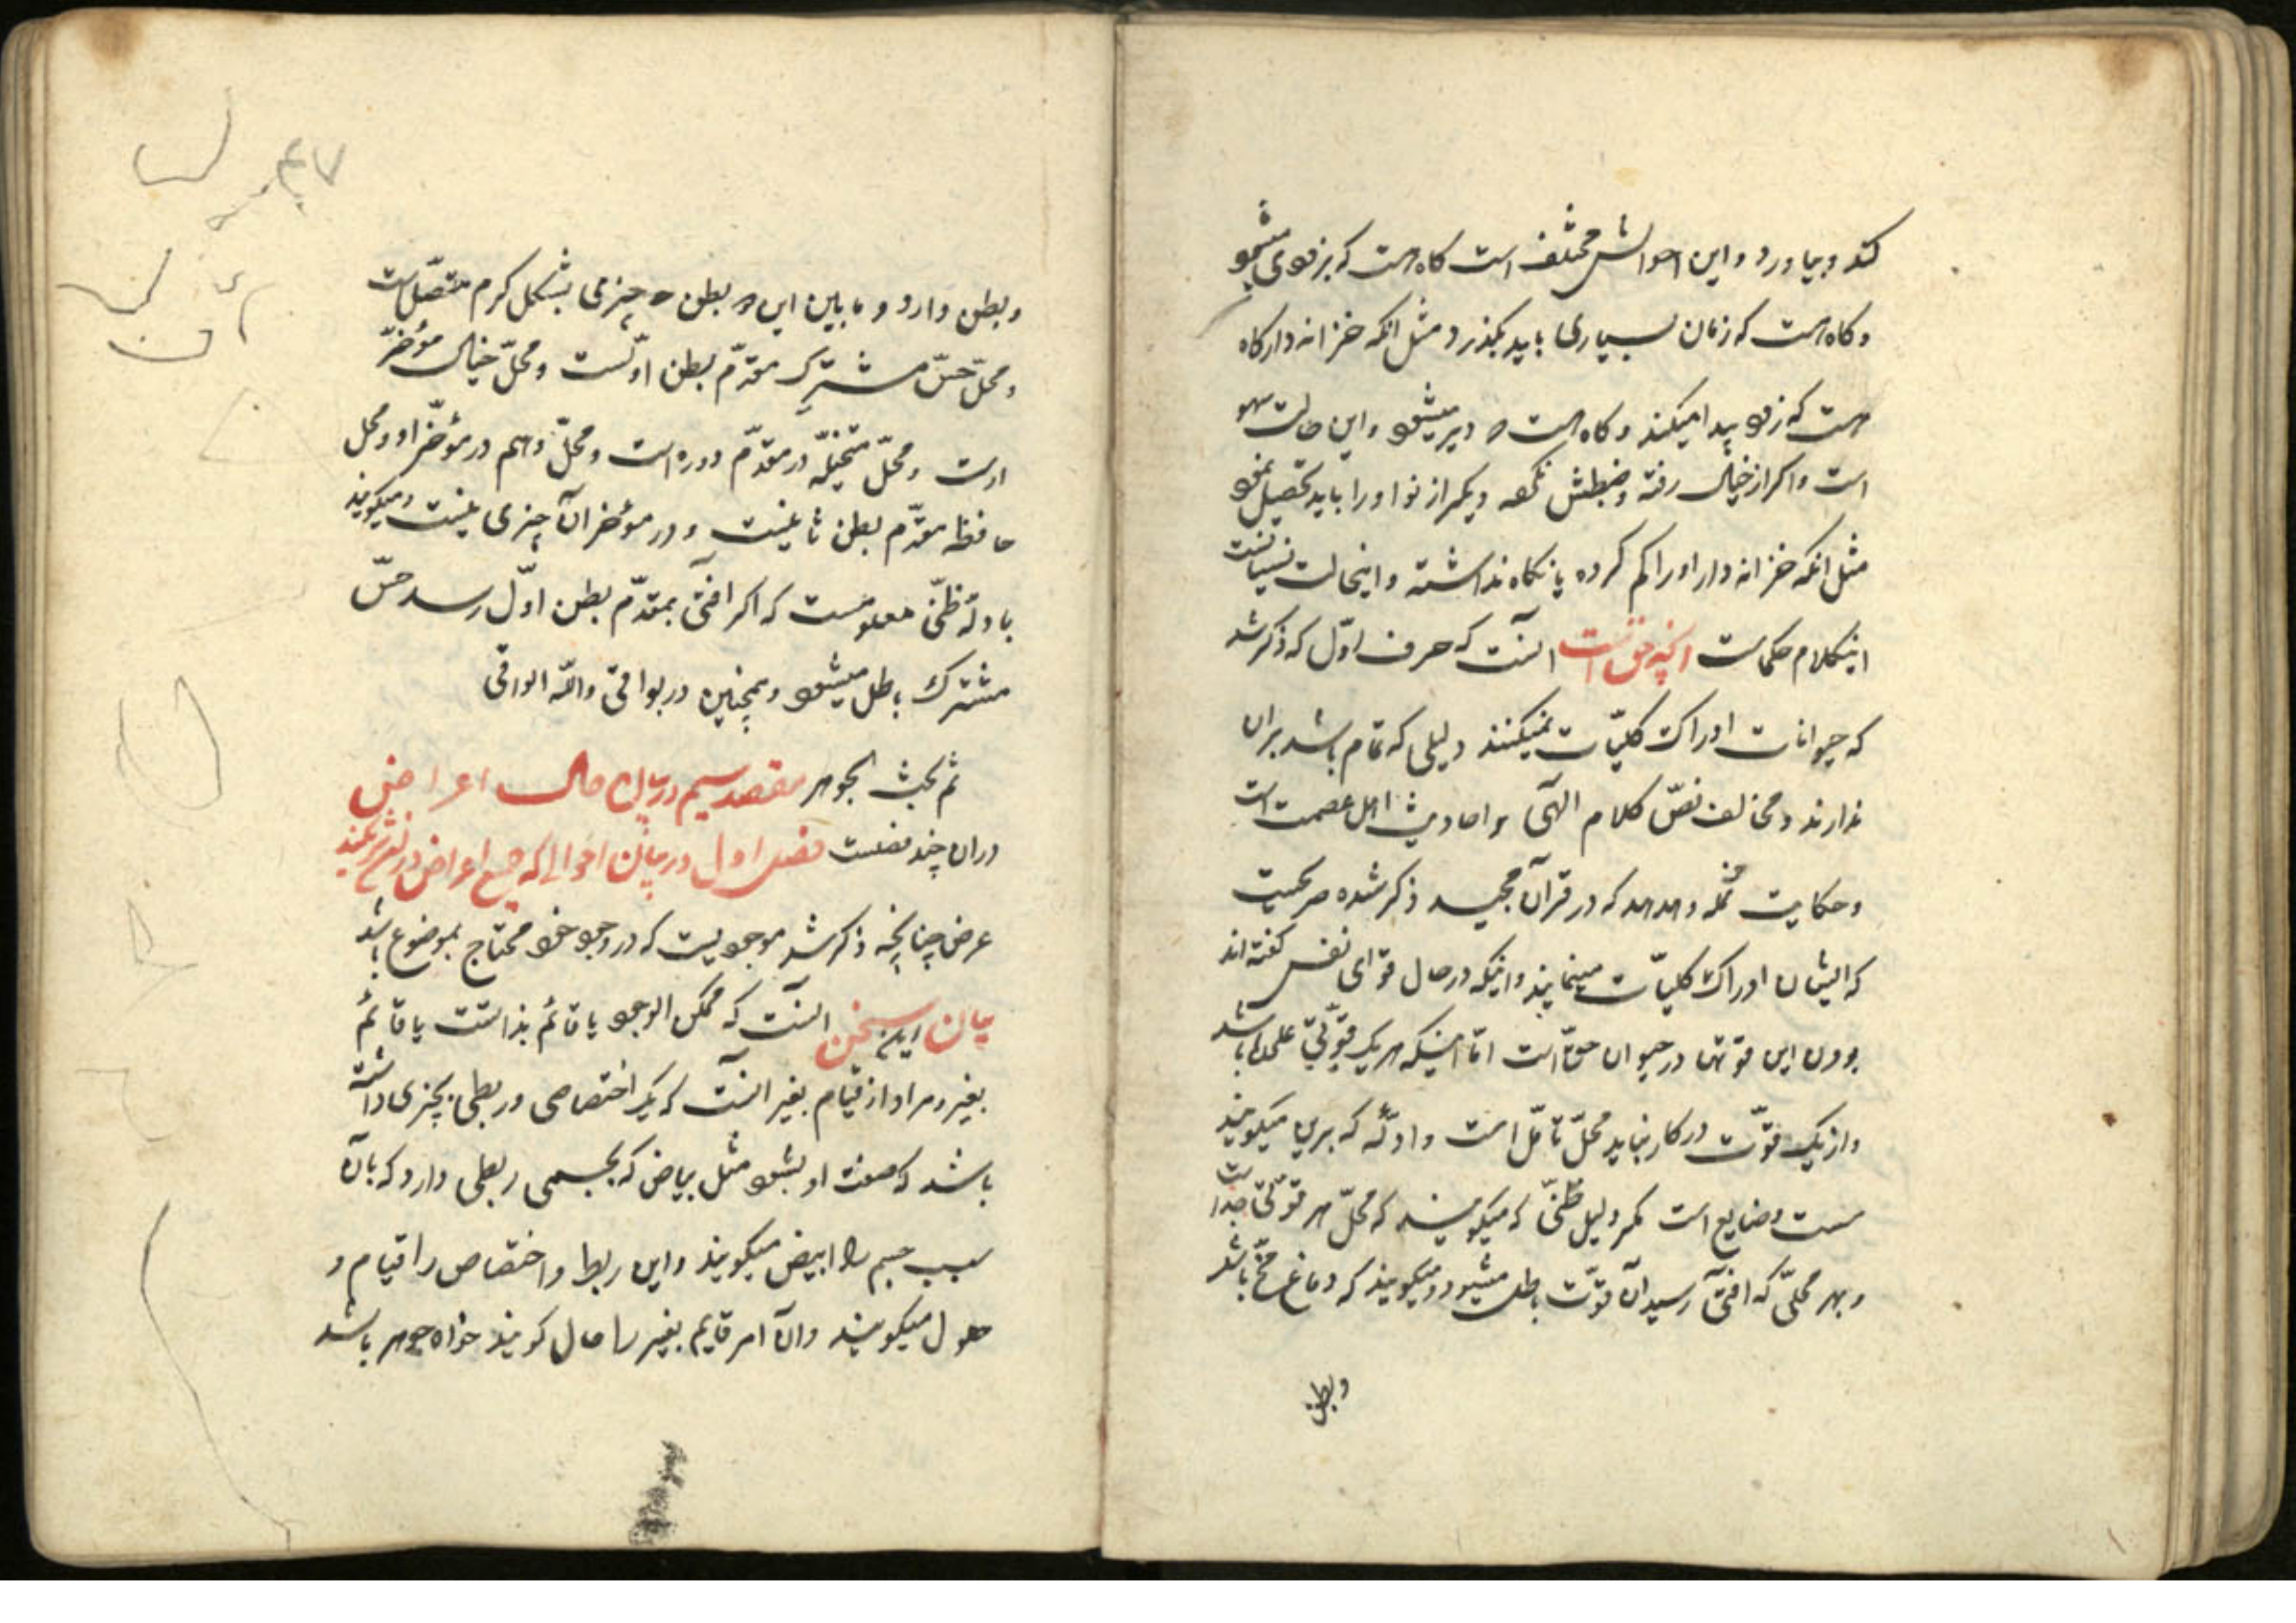 کند و بیاورد و این احوالش مختلف است کاه هست که بزودی میشود
و کاه هست که زمان بسیاری باید بکذرد مثل انکه خزانه دار کاه
هست که زود پیدا میکند و کاه هست که دیر میشود و این حالت سهو
است و اکر از خیال رفته و ضبطش نکرده دیکر از نو او را باید تحصیل نمود
مثل انکه خزانه دار او را کم کرده یا نکاه نداشته و اینحالت نسیانست
اینکلام حکماست انچه حق است انست که حرف اوّل که ذکر شد
که حیوانات ادراک کلیّات نمیکنند دلیلی که تمام باشد بران
ندارند و مخالف نصّ کلام الهی و احادیث اهل عصمت است
و حکایت نمله و هدهد که در قرآن مجید ذکر شده صریحست
که ایشان ادراک کلیّات مینمایند و انیکه در حال قوّای نفس کفته اند
بودن این قوتها در حیوان حقّ است امّا اینکه هر یک قوّتی علیحده باشد
و از یک قوّت در کار نیاید محلّ تامّل است و ادلّه که برین میکویند
سست و ضایع است مکر دلیل ظنّی که میکویند که محلّ هر قوّتی جداست
و بهر محلّی که افتی رسید ان قوّت باطل میشود و میکویند که دماغ مخّ باشد
و بطن
و بطن دارد و ما بین این دو بطن چیزی بشکل کرم متصّل است
و محلّ حسّ مشترک مقدّم بطن اوّلست و محلّ خیال مؤخّر
اوست و محلّ متخیّله در مقدّم دوده است و محلّ وهم در مؤخّر او و محل
حافظه مقدّم بطن ثانیست و در مؤخر ان چیزی نیست و میکویند
بادلّه ظنّی معلومست که اکر افتی بمقدّم بطن اوّل رسد حسّ
مشترک باطل میشود و همچنین در بواقی و اللّه الواقی
تم بحث الجوهر مقصد سیم در بیان حال اعراض
دران چند فصلست فصل اول در بیان احوالی که جمیع اعراض دران شریکند
عرض چنانچه ذکر شد موجودیست که در وجود خود محتاج بموضوع باشد
بیان این سخن انست که ممکن الوجود یا قائم بذاتست یا قائم
بغیر و مراد از قیام بغیر انست که یک اختصاصی و ربطی بچیزی داشته
باشد که صفت او بشود مثل بیاض که بجسمی ربطی دارد که بآن
سبب جسم را ابیض میکویند و این ربط و اختصاص را قیام و
حلول میکویند و ان امر قایم بغیر را حال کویند خواه جوهر باشد